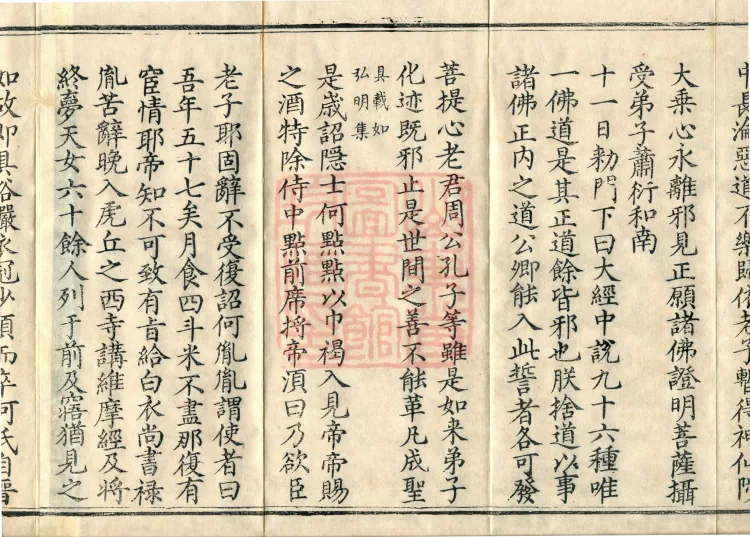 中長淪惡道不樂歸依老子暫得神仙
大乗心永離邪見正願諸佛證明菩薩攝
受弟子蕭衍和南
十一日勑門下曰大經中說九十六種唯
一佛道是其正道餘皆邪也朕捨道以事
諸佛正内之道公卿能入此誓者各可發
菩提心老君周公孔子等雖是如来弟子
化迹既邪止是世間之善不能革凡成聖
具載如
弘明集
是歳詔隠士何點點以巾褐入見帝帝賜
之酒特除侍中點前席捋帝湏曰乃欲臣
老子耶固辭不受復詔何胤胤謂使者曰
吾年五十七矣月食四斗米不盡那復有
宦情耶帝知不可致有旨給白衣尚書禄
胤苦辭晚入虎丘之西寺講維摩經及將
終夢天女六十餘人列于前及寤猶見之
如故即具浴嚴衣冠少頃而卒何氏自晉